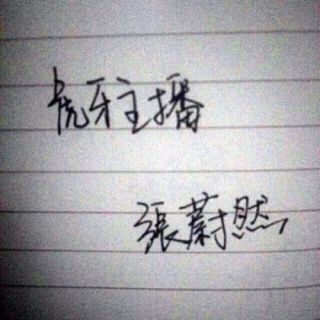 虎牙主播
張蔚然